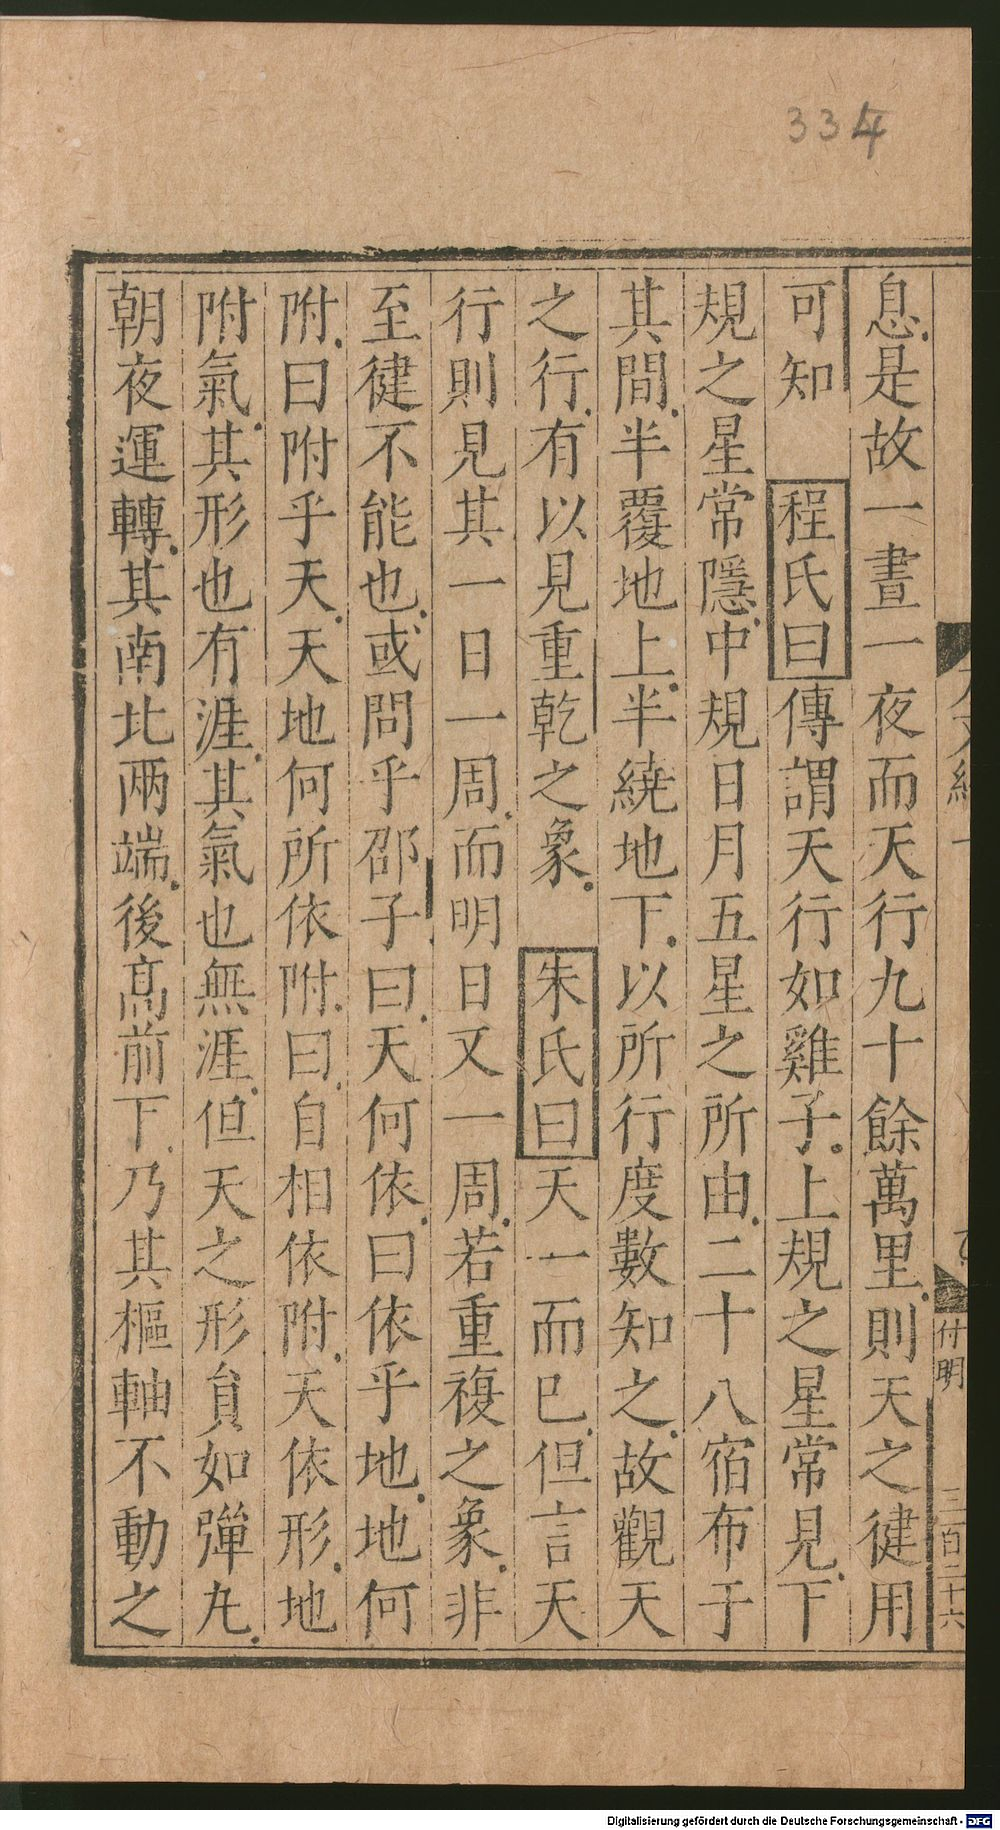 334
息是故一晝一夜而天行九十餘萬里則天之健用
可知　程氏曰傳謂天行如雞子上規之星常見下
規之星常隱中規日月五星之所由二十八宿布于
其間半覆地上半繞地下以所行度數知之故觀天
之行有以見重乾之象　朱氏曰天一而已但言天
行則見其一日一周而明日又一周若重複之象非
至健不能也或問乎邵子曰天何依曰依乎地地何
附曰附乎天天地何所依附曰自相依附天依形地
附氣其形也有涯其氣也無涯但天之形貟如彈丸
朝夜運轉其南北兩端後高前下乃其樞軸不動之
付明
三百二十六
Digitalisierung gefördert durch die Deutsche Forschungsgemeinschaft - DFG